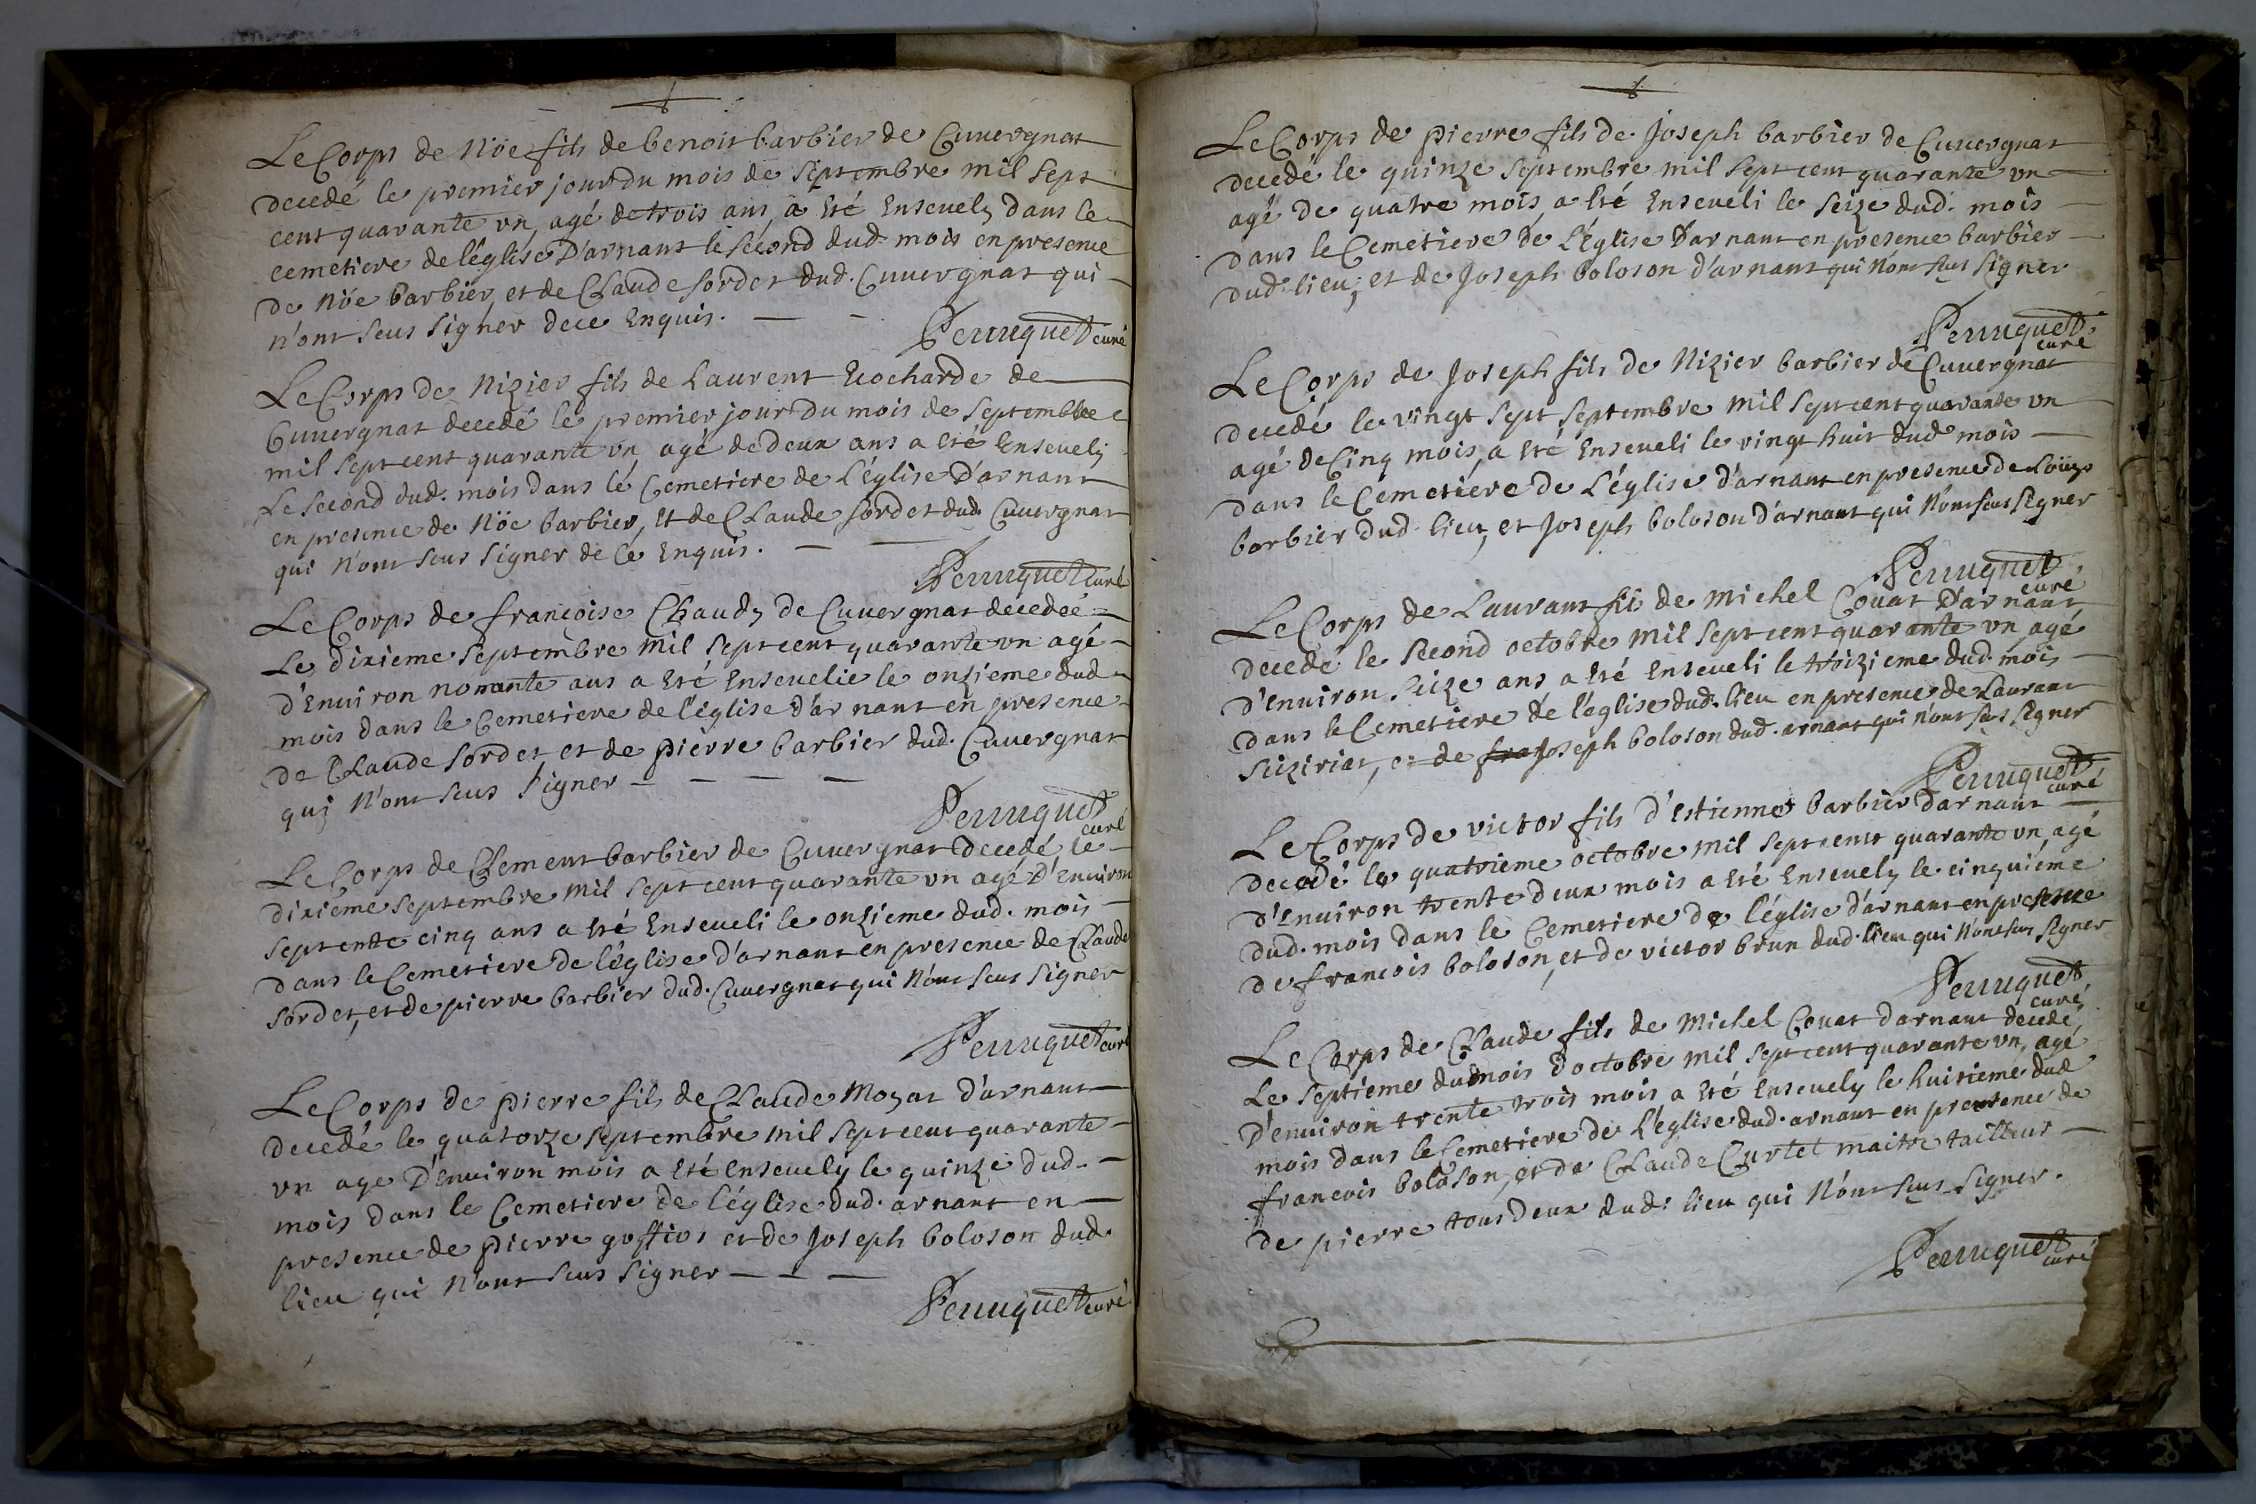 Le Corps de Nöe fils de benoit barbier de Cuuergnat
decedé le premier jour du mois de septembre mil sept
cent quarante vn, agé de trois ans, a Eté Enseuely dans le
cemetiere de l'église D'arnant le second dud. mois en presence
de Nöe barbier, et de Claude sordet dud. Cuuergnat qui
n'ont seus signer de ce Enquis.
Perruquet curé
Le Corps de Nizier fils de Laurent Rocharde de
Cuuergnat decedé le premier jour du mois de septembre
mil sept cent quarante vn agé de deux ans a Eté Enseuely
Le second dud. mois dans le Cemetiere de L'église D'arnant
en presence de Nöe barbier, Et de Claude sordet dud. Cuuergnat
qui N'ont seus signer de Ce Enquis.
Perruquet curé
Le Corps de francoise Chaudy de Cuuergnat decedée
Le dixieme septembre mil sept cent quarante vn agé
d'Enuiron nonante ans a Eté Enseuelie le onzieme dud
mois dans le Cemetiere de l'église d'arnant en presence
de Claude sordet et de pierre barbier dud. Cuuergnat
qui N'ont seus signer
Perruquet
curé
Le Corps de Clement barbier de Cuuergnat decedé le
dixieme septembre mil sept cent quarante vn agé D'Enuiron
septente cinq ans a Eté Enseueli le onzieme dud. mois
dans le Cemetiere de l'église d'arnant en presence de Claude
sordet, et de pierre barbier dud. Cuuergnat qui N'ont seus signer
Perruquet curé
Le Corps de pierre fils de Claude Moyat d'arnant
decedé le quatorze septembre mil sept cent quarante
vn age D'Enuiron mois a Eté Enseuely le quinze dud.
mois dans le Cemetiere de l'église dud. arnant en
presence de pierre et de Joseph boloson dud.
lieu qui N'ont seus signer
Perruquet curé
Le Corps de pierre fils de Joseph barbier de Cuuergnat
decedé le quinze septembre mil sept cent quarante vn
agé de quatre mois, a Eté Enseueli le seize dud. mois
dans le Cemetiere de L'église D'arnant en presence barbier
dud. lieu, et de Joseph boloson d'arnant qui N'ont seus signer
Perruquet
curé
Le Corps de Joseph fils de Nizier barbier de Cuuergnat
decedé le vingt sept septembre mil sept cent quarante vn
agé de Cinq mois, a Eté Enseueli le vingt huit dud mois
dans le Cemetiere de L'église d'arnant en presence de
barbier dud. lieu, et Joseph boloson d'arnant qui N'ont seus signer
Perruquet
curé
Le Corps de Laurant fils de michel Couat D'arnant
decedé le second octobre mil sept cent quarante vn agé
d'Enuiron seize ans a Eté Enseueli le troizieme dud. mois
dans le Cemetiere de l'église dud. lieu en presence de Laurant
suiziriat, et de Joseph boloson dud. arnant qui n'ont seus signer
Perruquet
curé
Le Corps de victor fils d'Estienne barbier D'arnant
decedé le quatrieme octobre mil sept cent quarante vn, agé
d'Enuiron trente deux mois a Eté Enseuely le cinquiéme
dud. mois dans le Cemetiere de l'église d'arnant en presence
de francois boloson, et de victor brun dud. lieu qui N'ont seus signer
Perruquet
curé
Le Corps de Claude fils de michel Couat d'arnant decedé
Le septieme du mois d'octobre mil sept cent quarante vn, agé
D'enuiron trente trois mois a Eté Enseuely le huitieme dud
mois dans le Cemetiere de L'église dud. arnant en presence de
francois boloson, et de Claude Curtet maitre tailleur
de pierre tous deux dud. lieu qui N'ont seus signer.
Perruquet
curé